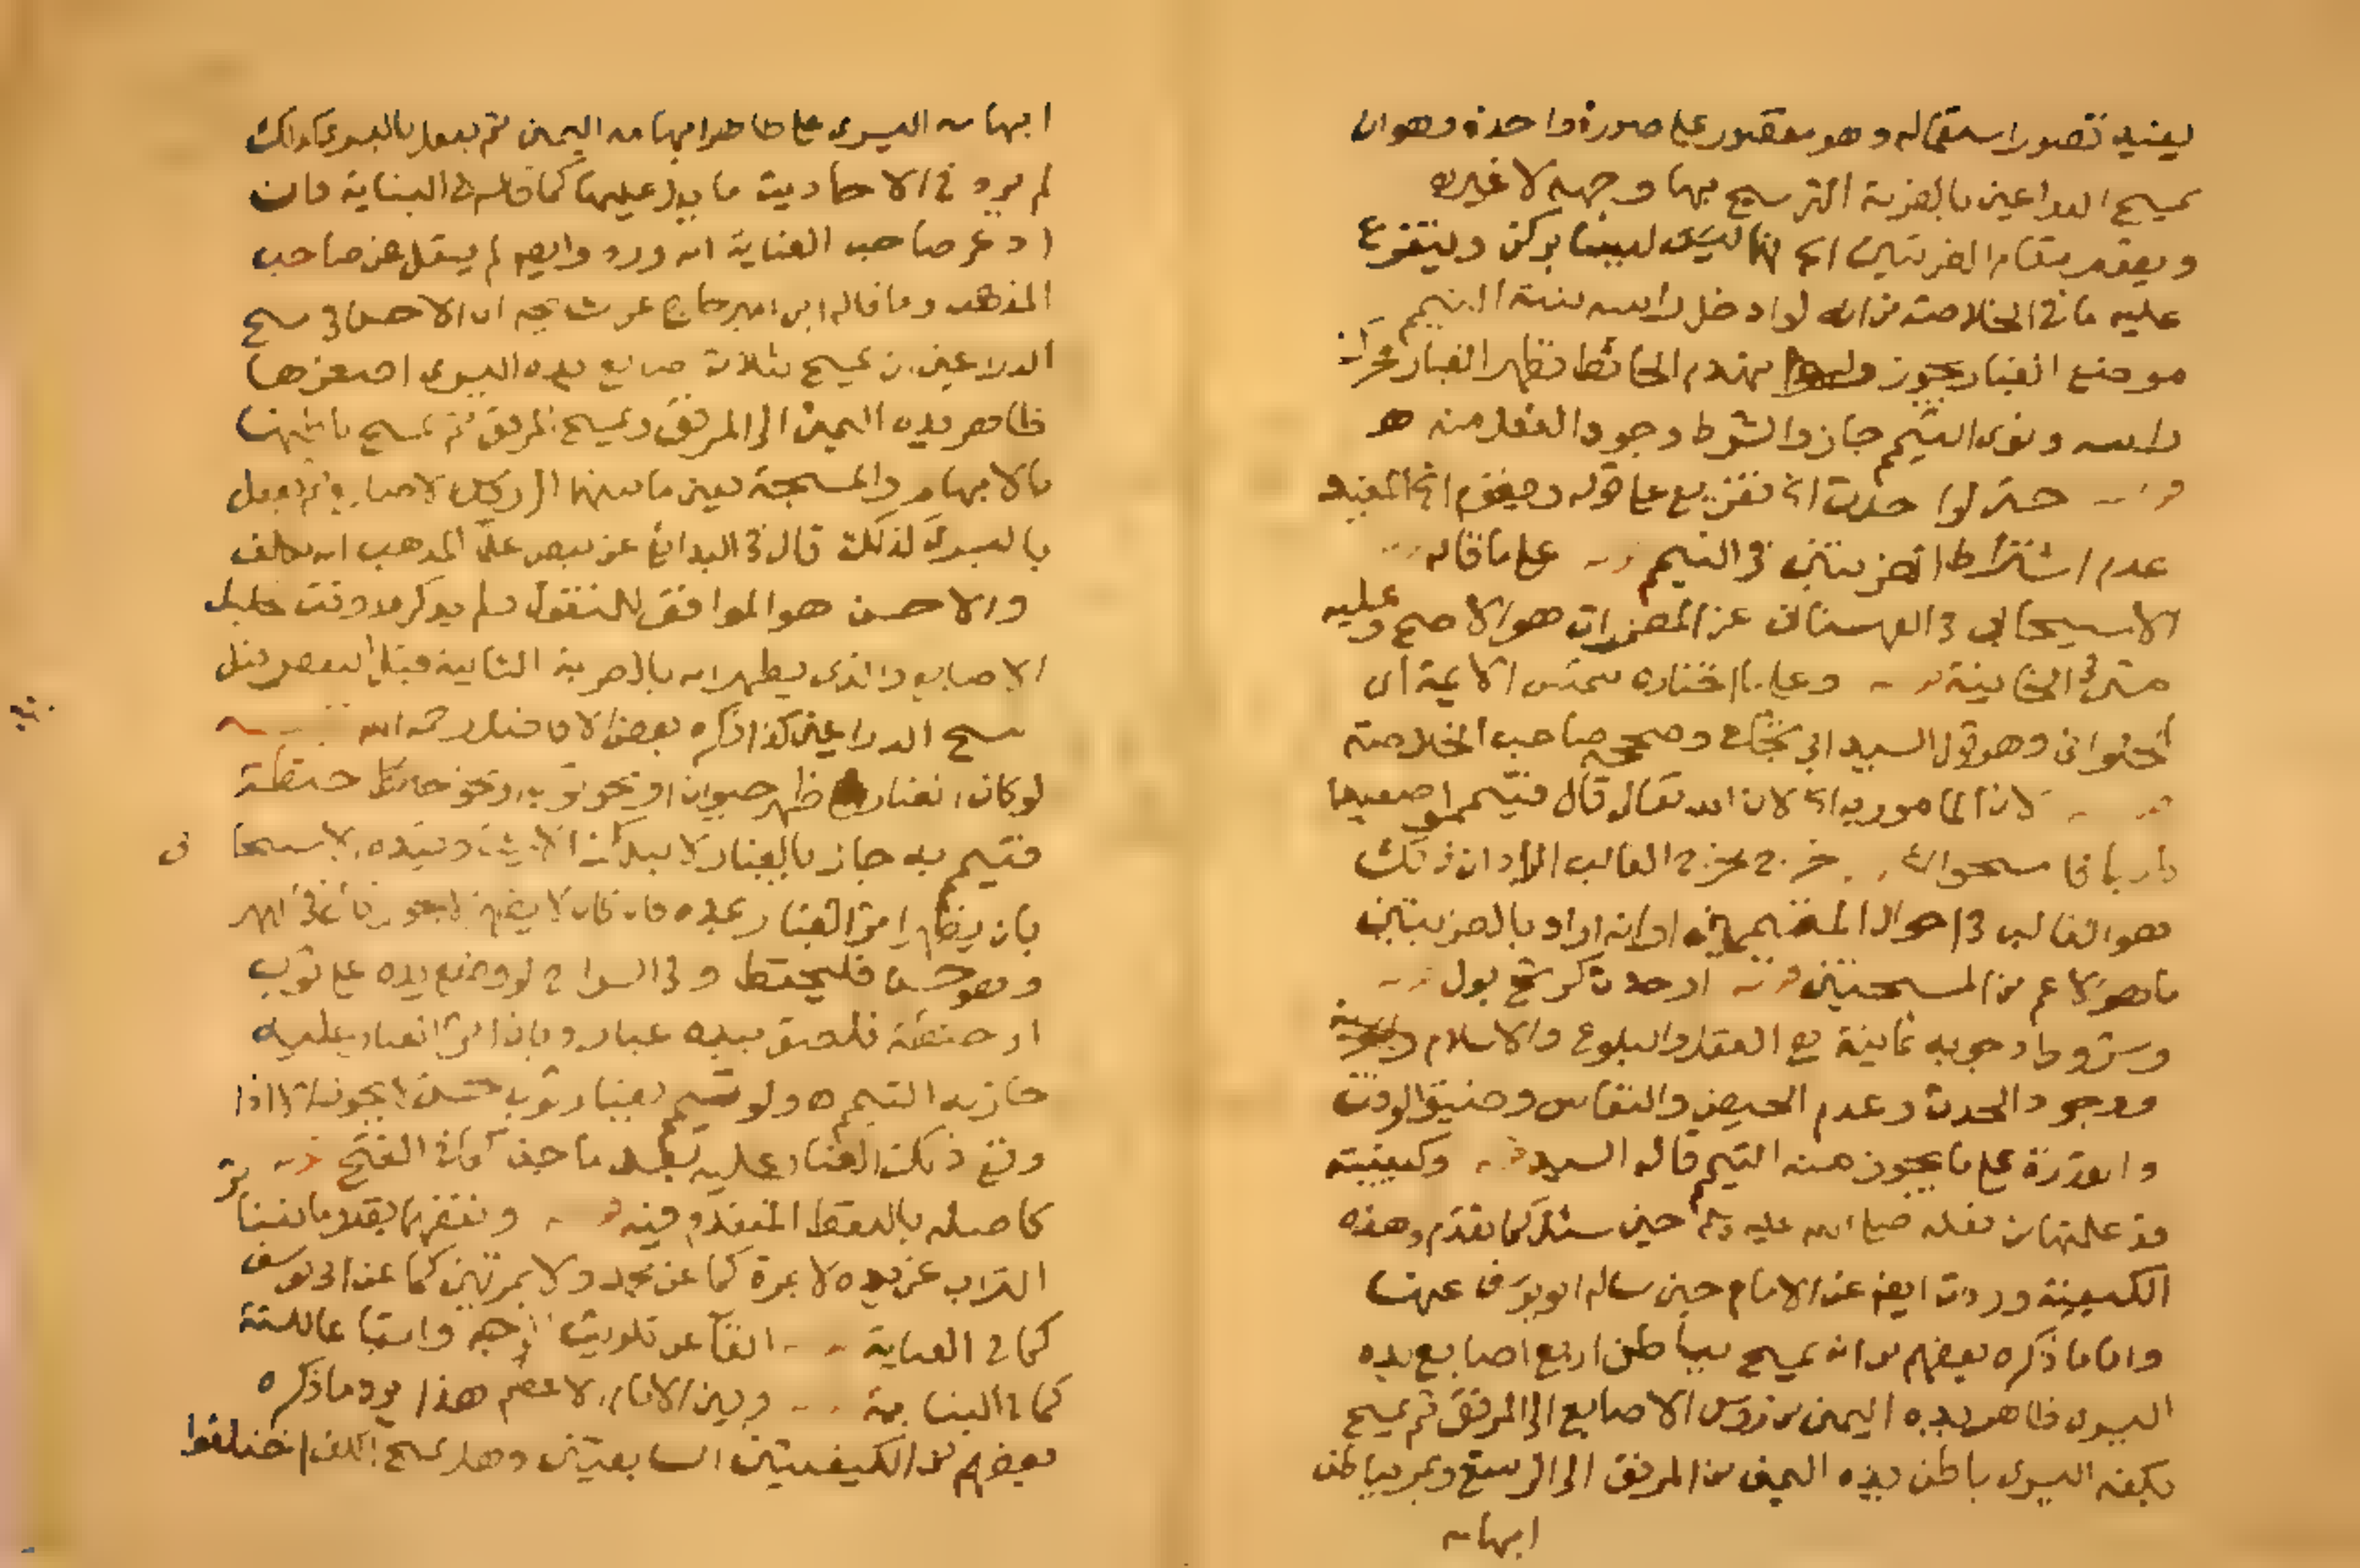 يفيد تصور استعماله وهو مقصور على صورة واحدة وهو ان
يمسح الذراعين بالضربة التى مسح بها وجهه لا غير
ويقوم مقام الضربتين اى انها ليست بركن ويتفرع
عليه ما فى الخلاصة من انه لو ادخل راسه بنية التيمم
موضع الغبار يجوز ولو انهدم الحائط فظهر الغبار فحرك
راسه ونوى التيمم جاز والشرط وجود الفعل منه
حتى لو احدث اى تفريع على قوله اى المفيد
عدم اشتراط الضربتين فى التيمم على ما قاله
الاسبيجابى فى القهستانى عن المضمرات هو الاصح وعليه
مشى فى الخانية وعلى ما اختاره شمس الائمة اى
الحلوانى وهو قول السيد ابى شجاع وصححه صاحب الخلاصة
لان المامور به اى لان الله تعالى قال فتيمموا صعيدا
طيبا فامسحوا الخ خرج مخرج الغالب المراد ان ذلك
هو الغالب فى احوال المتيممين او انه اراد بالضربتين
ما هو الاعم من المسحتين او حدث كرشح بول
وشروط وجوبه ثمانية مع العقل والبلوغ والاسلام
ووجود الحدث وعدم الحيض والنفاس وضيق الوقت
والقدرة على ما يجوز منه التيمم قاله السيد وكيفيته
قد علمتها من فعله صلى الله عليه وسلم حين سئل كما تقدم وهذه
الكيفية وردت ايضا عن الامام حين ساله ابو يوسف عنها
واما ما ذكره بعضهم من انه يمسح بباطن اربع اصابع يده
اليسرى ظاهر يده اليمنى من رؤس الاصابع الى المرفق ثم يمسح
بكفه اليسرى باطن يده اليمنى من المرفق الى الرسغ ويمر بباطن
ابهامه
ابهامه اليسرى على ظاهر ابهامه اليمنى ثم يفعل باليسرى كذلك
لم يرد فى الاحاديث ما يدل عليها كما قاله فى البناية وان
ادعى صاحب العناية انه ورد وايضا لم ينقل عن صاحب
المذهب وما قاله ابن امير حاج عن شيخه ان الاحسن فى مسح
الذراعين ان يمسح بثلاثة اصابع يده اليسرى اصغرها
ظاهر يده اليمنى الى المرفق ويمسح المرفق ثم يمسح باطنها
بالابهام والمسبحة يعنى ما بينهما الى رؤس الاصابع ثم يفعل
باليسرى كذلك قال فى البدائع عن بعض علماء المذهب انه تكلف
والاحسن هو الموافق للمنقول ولم يذكروا وقت تخليل
الاصابع والذى يظهر انه بالضربة الثانية قبل
مسح الذراعين كذا ذكره بعض الافاضل رحمه الله
لو كان الغبار على ظهر حيوان او نحو ثوب او نحو حنطة
فتيمم به جاز بالغبار لا بذلك الشئ وقيده الاسبيجابى
بان يظهر اثر الغبار بمده فان كان لا يظهر لا يجوز قال فى النهر
وهو حسن فليحفظ وفى السراج لو وضع يده على ثوب
او حنطة فلصق بيده غبار وبان اثر الغبار عليه
جاز به التيمم ولو تيمم بغبار ثوب نجس لا يجوز الا اذا
وقع ذلك الغبار عليه بعد ما جف كما فى الفتح
كاصله باللفظ المتقدم فيه ونفضهما بقدر ما يتناثر
التراب عن يده لا بمرة كما عن محمد ولا بمرتين كما عن ابى يوسف
كما فى العناية اتقاء عن تلويث الوجه واتباعا للسنة
كما فى النهاية وبين الامام الاعظم هذا يرد ما ذكره
بعضهم من الكيفيتين السابقتين وهل يمسح الكف اختلفوا